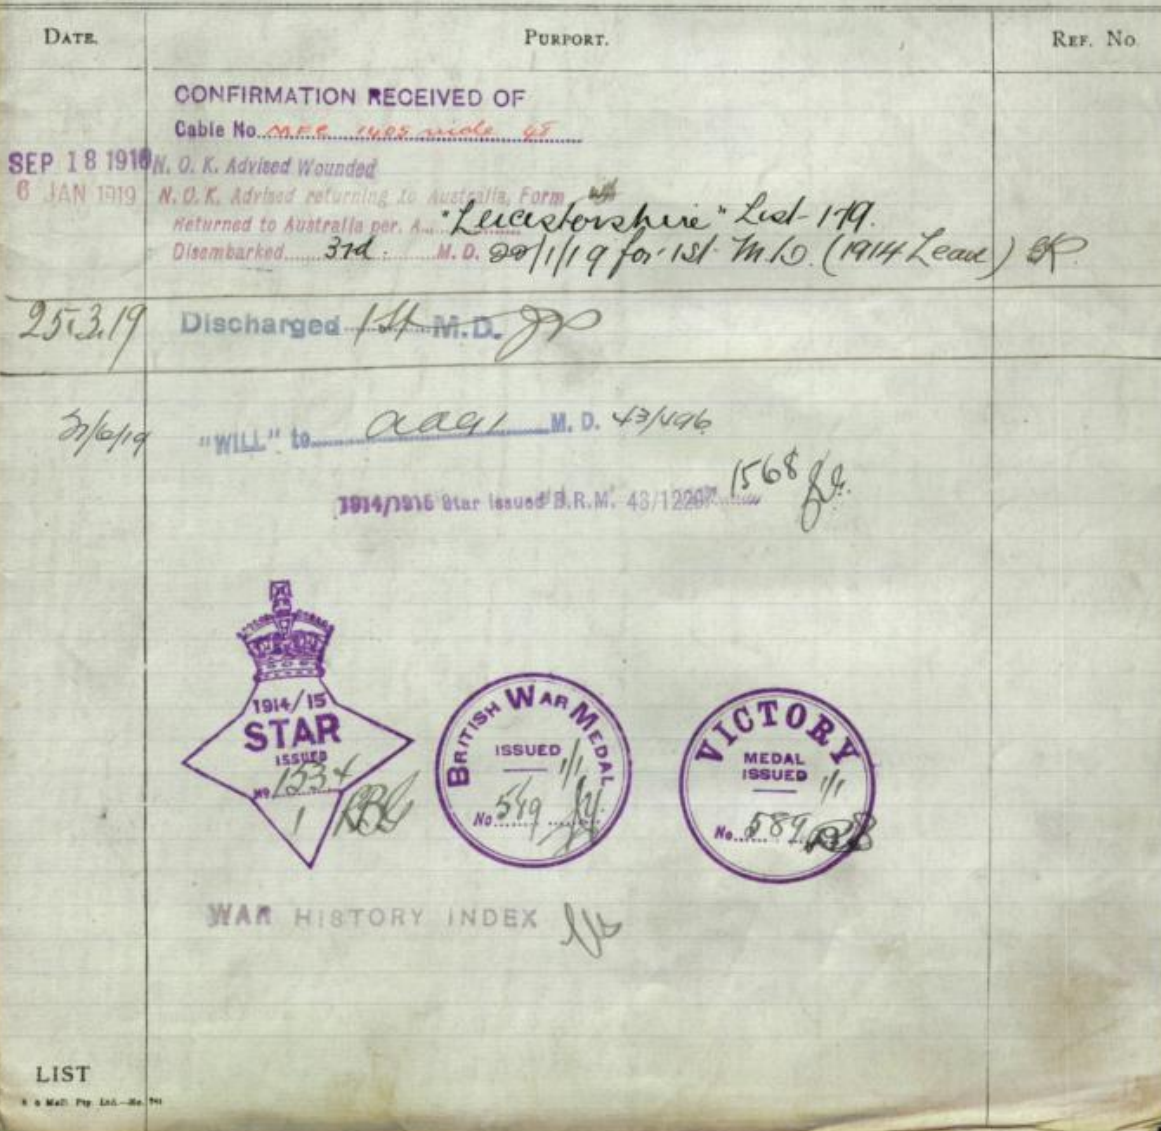 DATE. PURPORT. REF. No.
CONFIRMATION RECEIVED OF
Cable No. 1405 vide
SEP 18 1918 N. O. K. Advised Wounded
6 JAN 1919 N. O. K. Advised returning to Australia, Form
Returned to Australia per. A... "Leicestershire" List 179.
Disembarked......3rd.......M. D. 20/1/19 for 1st M.D. (1914 Leave)
25.3.19 Discharged 1st M.D.
"WILL" to M. D. 43/496
1914/1915 Star Issued B.R.M. 43/1220 1568
1914/15
STAR
ISSUED
No. 1534
1
BRITISH WAR MEDAL
ISSUED 1/1
No 589
VICTORY
MEDAL
ISSUED 1/1
No. 589
WAR HISTORY INDEX
LIST